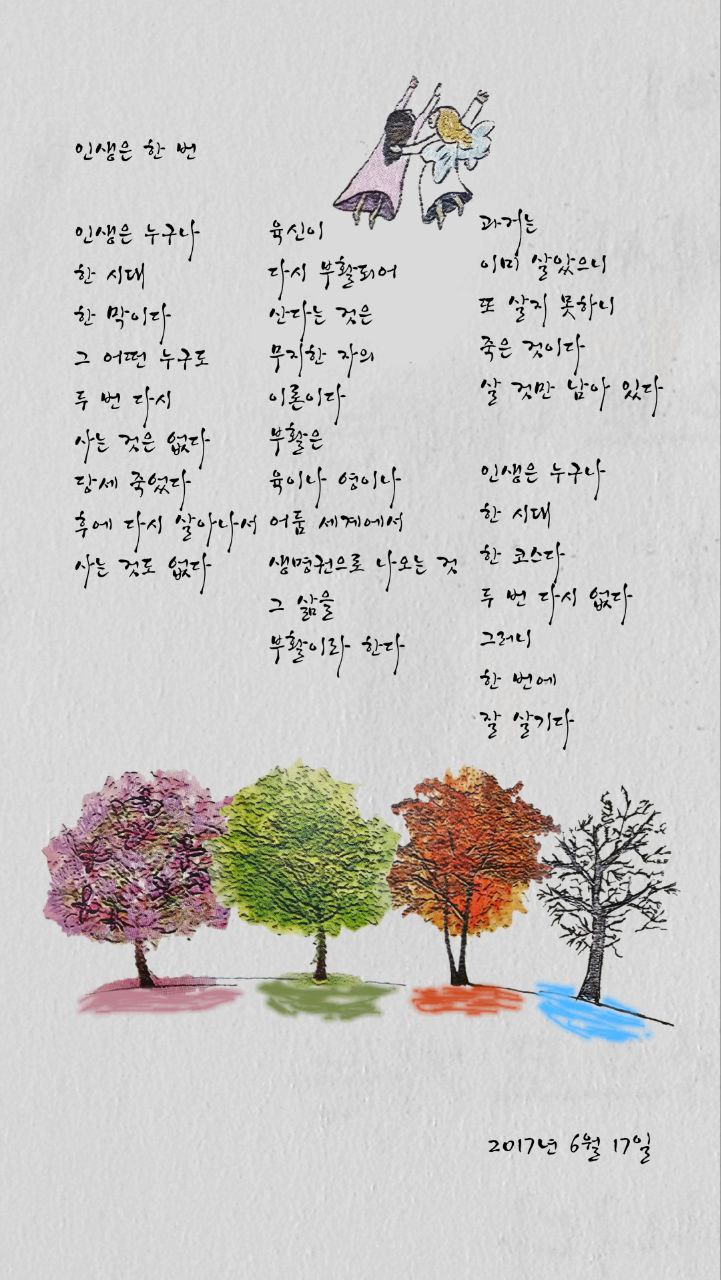 인생은 한 번
인생은 누구나
한 시대
한 막이다
그 어떤 누구도
두 번 다시
사는 것은 없다
당세 죽었다
후에 다시 살아나서
사는 것도 없다
육신이
다시 부활되어
산다는 것은
무지한 자의
이론이다
부활은
육이나 영이나
어둠 세계에서
생명권으로 나오는 것
그 삶을
부활이라 한다
과거는
이미 살았으니
또 살지 못하니
죽은 것이다
살 것만 남아 있다
인생은 누구나
한 시대
한 코스다
두 번 다시 없다
그러니
한 번에
잘 살기다
2017년 6월 17일